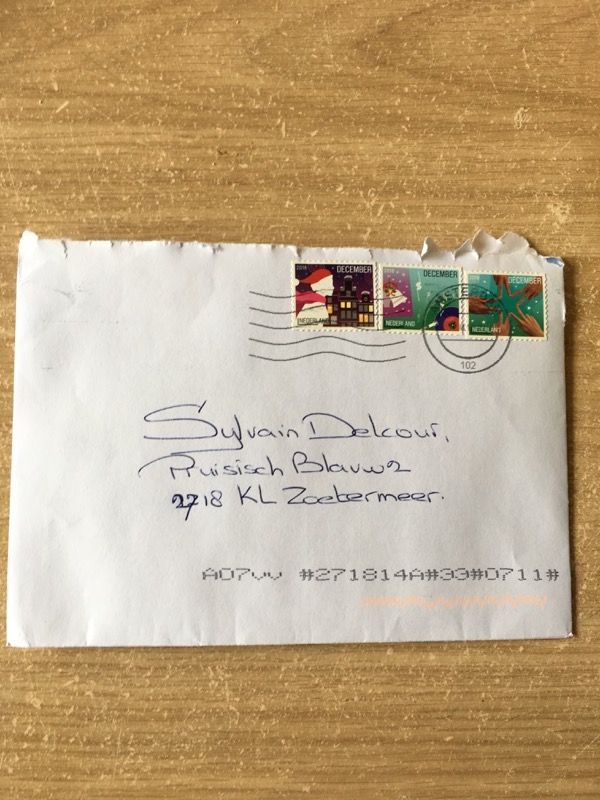 2018 DECEMBER DECEMBER DECEMBER
NEDERLAND NEDERLAND NEDERLAND
102
Sylvain Delcour,
Pruisisch Blauw 2
2718 KL Zoetermeer.
A07vv #271814A#33#0711#